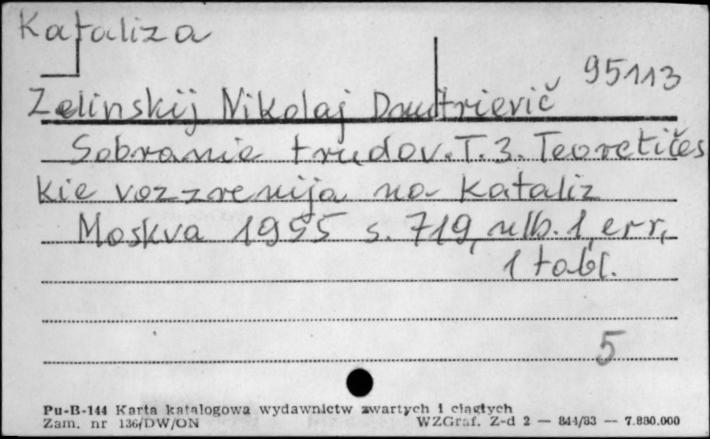 Kataliza
95113
Zelinskij Nikolaj Dmitrievič
Sobranie trudov. T. 3. Teoretičes
kie vozzrenija na kataliz
Moskva 1955 s. 719, nlb. 1, err,
1 tabl.
5
Pu-B-144 Karta katalogowa wydawnictw zwartych i ciągłych
Zam. nr 136/DW/ON WZGraf. Z-d 2 — 844/83 — 7.880.000